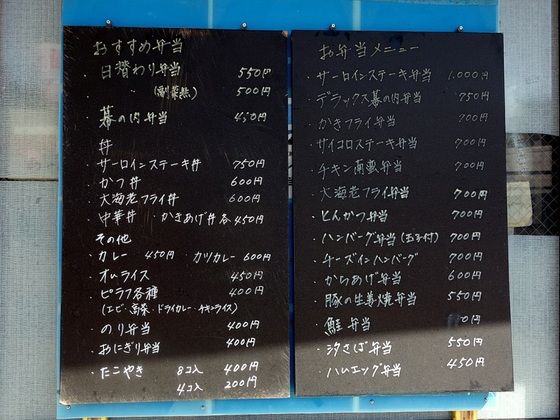 おすすめ弁当
・日替わり弁当 550円
・ 〃 (副菜無) 500円
・幕の内弁当
丼
・サーロインステーキ丼 750円
・かつ丼 600円
・大海老フライ丼 600円
・中華丼・かきあげ丼各450円
その他
・カレー 450円 カツカレー 600円
・オムライス 450円
・ピラフ各種 400円
(エビ・高菜・ドライカレー・チキンライス)
・のり弁当 400円
・おにぎり弁当 400円
・たこやき 8コ入 400円
4コ入 200円
お弁当メニュー
・サーロインステーキ弁当 1,000円
・デラックス幕の内弁当 750円
・かきフライ弁当 700円
・サイコロステーキ弁当 700円
・チキン南蛮弁当 700円
・大海老フライ弁当 700円
・とんかつ弁当 700円
・ハンバーグ弁当(玉子付) 700円
・チーズインハンバーグ 700円
・からあげ弁当 600円
・豚の生姜焼弁当 550円
・鮭弁当
・汐さば弁当 550円
・ハムエッグ弁当 450円